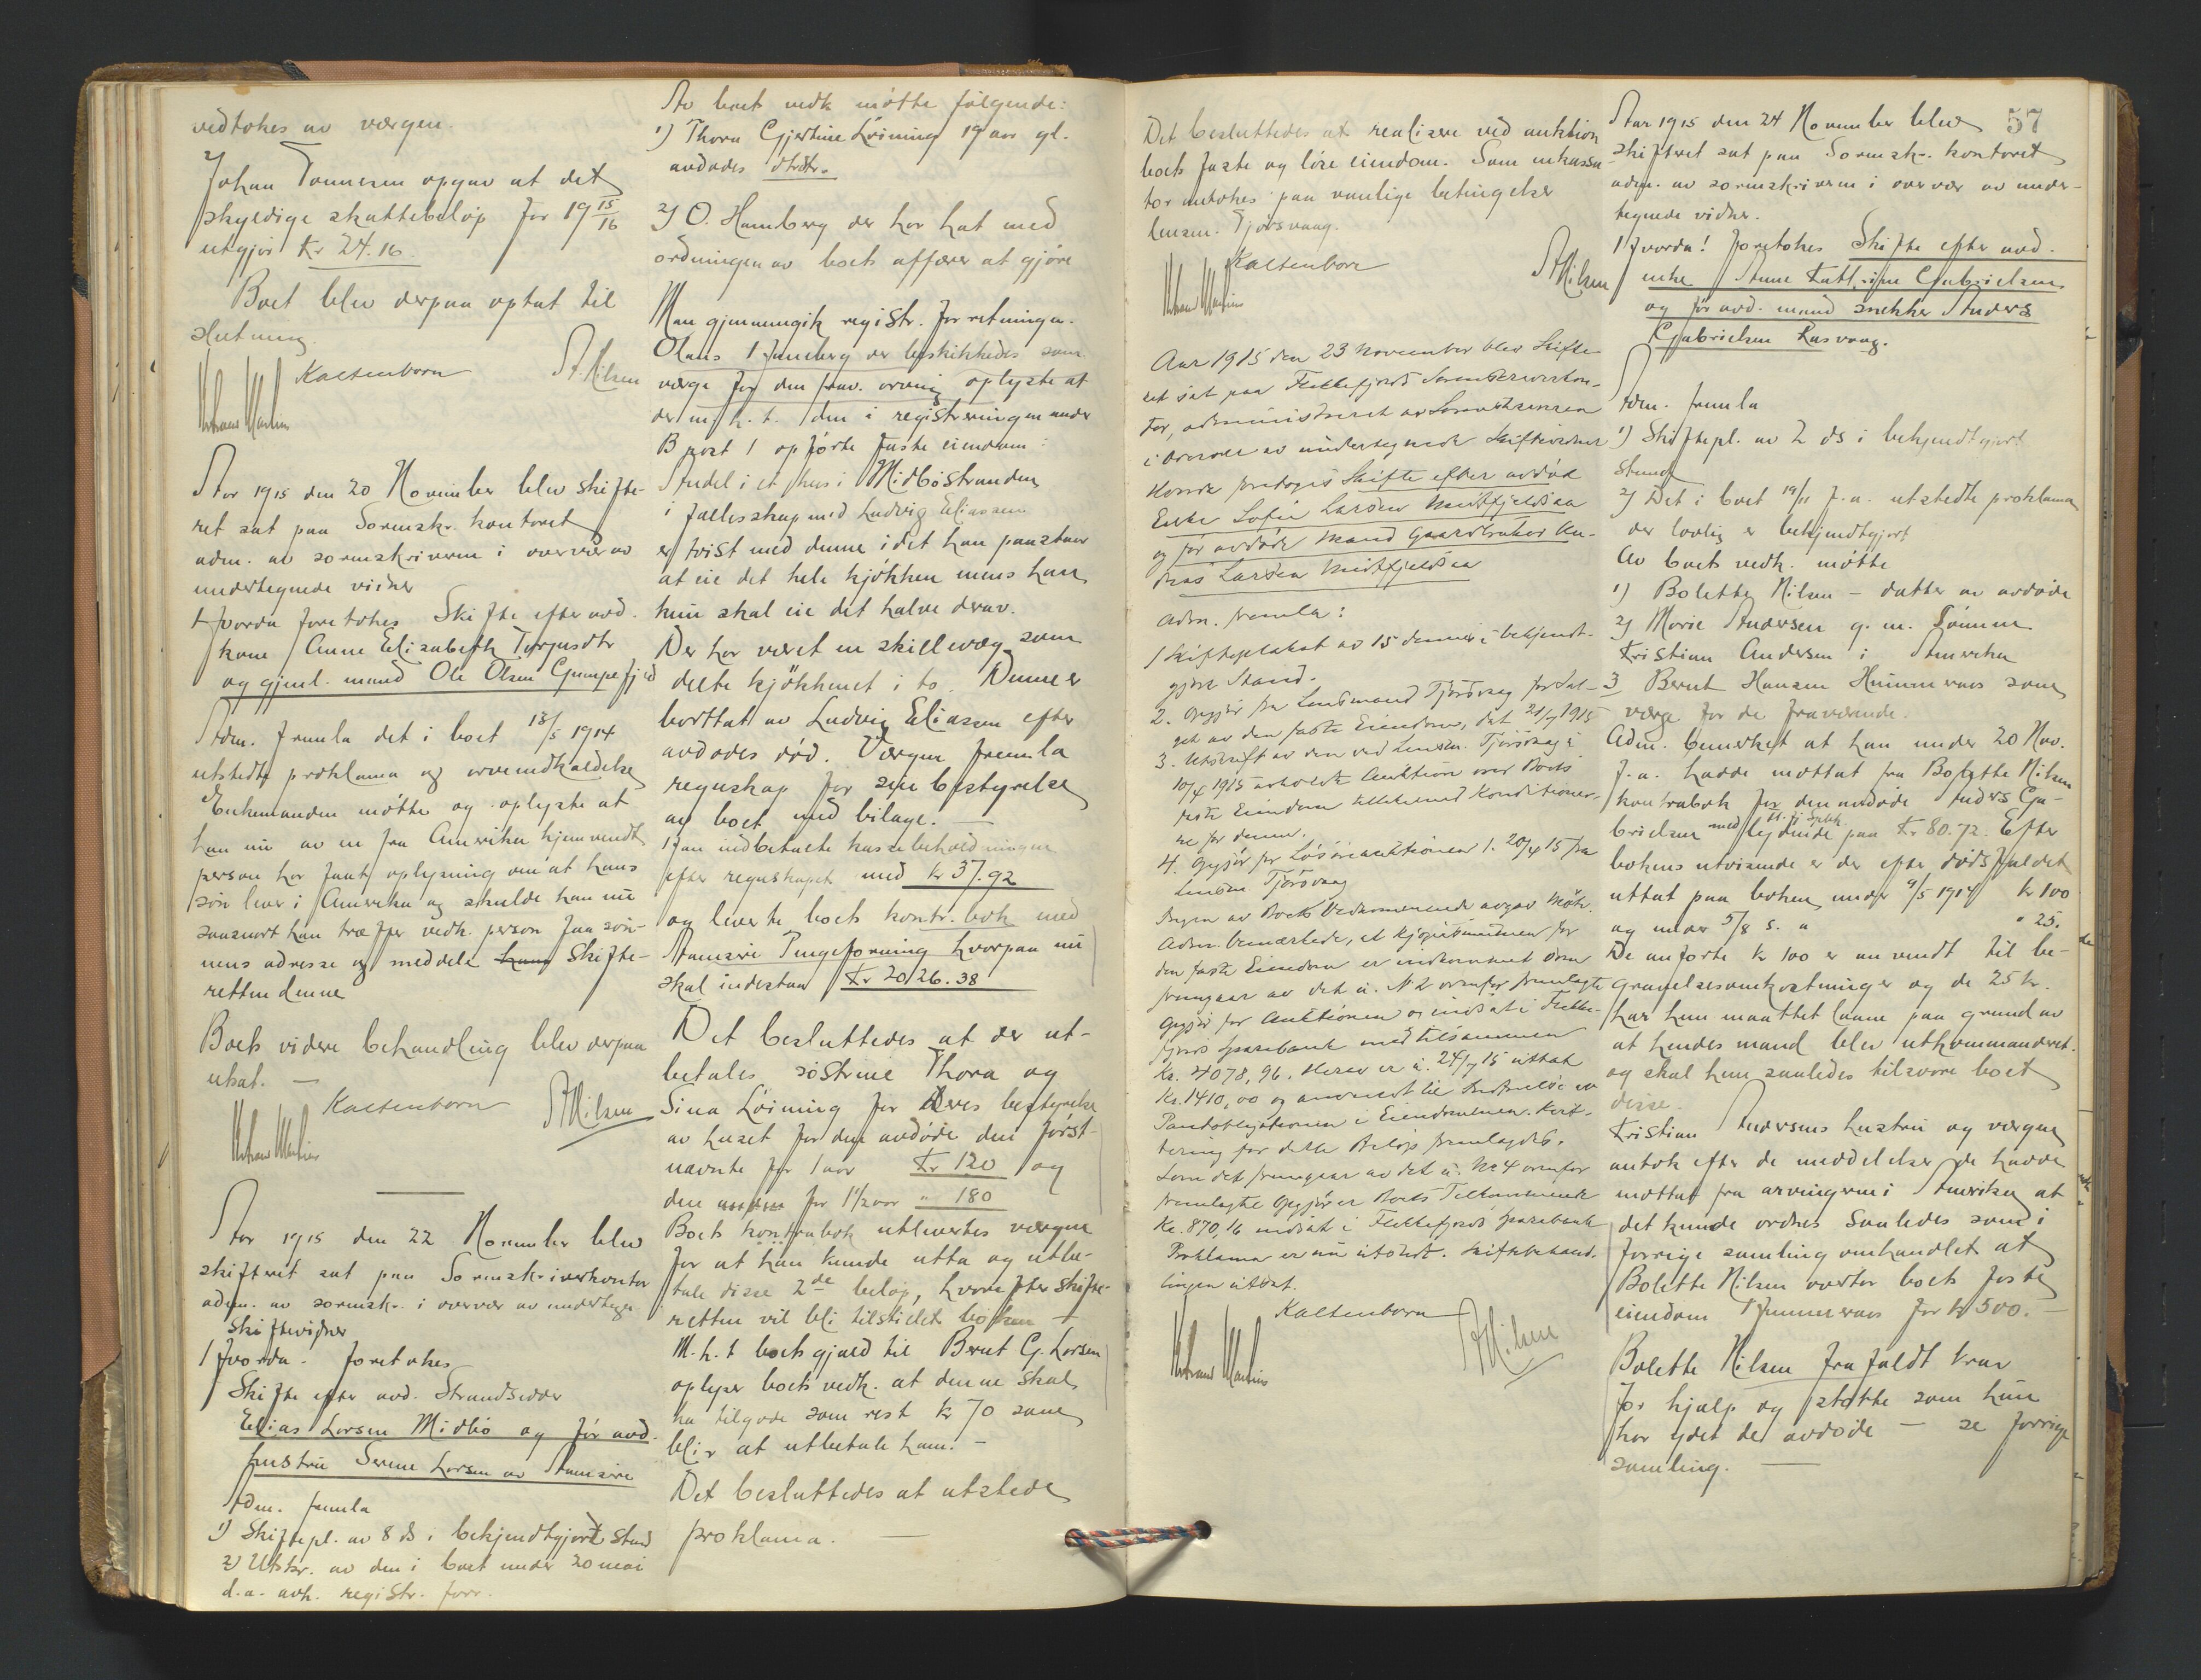 vedtokes av værgen.
Johan Tønnesen opgav at det
skyldige skattebeløp for 19 15/16
utgjør Kr 24.16
Boet blev derpaa optat til
slutning.
Kaltenborn
A Nilsen
Aar 1915 den 20 November blev skifte-
ret sat paa Sorenskr. kontoret
adm. av sorenskriveren i overvær av
undertegnede vidner
Hvorda foretokes Skifte efter avd.
kone Anne Elisabeth Torjusdtr
og gjenl. mand Ole Olsen
Adm. fremla det i boet 18/5 1914
utstedte proklama og arveindkaldelse
Enkemanden møtte og oplyste at
han nu av en fra Amerika hjemvendt
person har faat oplysning om at hans
søn lever i Amerika og skulde han nu
saasnart han træffer vedk. person faa søn-
nens adresse og meddele skifte-
retten denne
Boets videre behandling blev derpaa
utsat. —
Kaltenborn
A Nilsen
Aar 1915 den 22 November blev
skifteret sat paa Sorenskriverkontor
adm. av sorenskr. i overvær av undertegn
skiftevidner
Hvorda. foretokes
Skifte efter avd. Strandsidder
Elias Larsen Midbø og før avd.
hustru Serine Larsen av Annasire
Adm. fremla
1) Skiftepl. av 8 ds i bekjendtgjort stand
2) Utskr. av den i boet under 20 mai
d.a. avh. registr. forr.
Av boet vedk møtte følgende:
1) Thora Gjertine Løining 19 aar gl.
avdødes dtrdtr.
2) O. Hamberg der har hat med
ordningen av boets affærer at gjøre
Man gjennemgik registr. forretningen.
Olaus Hamberg der beskikkedes som
værge for den frav. arving oplyste at
der m. h. t. den i registreringen under
B post 1 opførte faste eiendom:
Andel i et hus i Midbøstranden
i fællesskap med Ludvig Eliassen
er tvist med denne idet han paastaar
at eie det hele kjøkken mens han
kun skal eie det halve derav.
Der har været en skillevæg som
delte kjøkkenet i to. Denne er
borttat av Ludvig Eliasen efter
avdødes død. Værgen fremla
regnskap for sin bestyrelse
av boet med bilage. —
Han indbetalte kassebeholdningen
efter regnskapet med kr 37.92
og leverte boets kontr. bok med
Anasire Pengeforening hvorpaa nu
skal indestaa Kr 2026.38
Det besluttedes at der ut-
betales søstrene Thora og
Sina Løining for deres bestyrelse
av huset for den avdøde den først-
nævnte for 1 aar Kr 120 og
den for 1½ aar " 180
Boets kontrabok utleveres værgen
for at han kunde utta og utbe-
tale disse 2de beløp, hvorefter skifte-
retten vil bli tilstillet boken —
M.h.t boets gjæld til Bernt G. Larsen
oplyser boets vedk. at denne skal
ha tilgode som rest kr 70 som
blir at utbetale ham. —
Det besluttedes at utstede
proklama. —
Det besluttedes at realisere ved auktion
boets faste og løse eiendom. Som inkassa-
tor antokes paa vanlige betingelser
lensm. Tjørsvaag.
Kaltenborn
A Nilsen
Aar 1915 den 23 November blev Skifte-
ret sat paa Flekkefjords Sorenskriverkon-
tor, administreret av Sorenskriveren
i Overvær av undertegnede Skiftevidner
Hvorda foretoges Skifte efter avdød
Enke Sofie Larsen Midtfjeldsaa
og før avdøde Mand Gaardbruker An-
dreas Larsen Midtfjeldsaa
Adm. fremla:
1 Skifteplakat av 15 dennes i bekjendt-
gjort Stand.
2. Opgjør fra Lensmand Tjørsvaag for Sal-
get av den faste Eiendom, dat 21/7 1915
3. Utskrift av den ved Lensm. Tjørsvaag i
10/4 1915 avholdt Auktion over Boets
faste Eiendom tillikemed Konditioner-
ne for denne.
4. Opgjør for Løsøreauktionen i. 20/4 15 fra
Lensm Tjørsvaag
Ingen av Boets Vedkommende avgav Møte.
Adm. bemærkede, at Kjøpesummen for
den faste Eiendom er indkommet som
fremgaar av det u. N 2 ovenfor fremlagte
Opgjør for Auktionen og indsat i Flekke-
fjords Sparebank med tilsammen
Kr. 4078,96. Herav er u. 24/7 15 uttat
Kr. 1410,00 og anvendt til Indfrielse av
Pantobligationen i Eiendommen. Kvit-
tering for dette Beløp fremlagdes.
Som det fremgaar av det u. No 4 ovenfor
fremlagte Opgjør er Boets Tilkommende
Kr. 870,16 indsat i Flekkefjords Sparebank
Proklama er nu utstedt. Skiftebehand-
lingen utsat.
Kaltenborn
A Nilsen
57
Aar 1915 den 24 November blev
skifteret sat paa Sorenskr. kontoret
adm. av sorenskriveren i overvær av under-
tegnede vidner.
Hvorda! foretokes Skifte efter avd.
enke Anne Kathrine Gabrielsen
og før avd. mand snekker Anders
Gabrielsen Rasvaag.
Adm. fremla
1) Skiftepl. av 2 ds i bekjendtgjort
stand
2) Det i boet 19/11 f.a. utstedte proklama
der lovlig er bekjendtgjort
Av boets vedk. møtte
1) Bolette Nilsen — datter av avdøde
2) Marie Andersen g. m. Tømm.
Kristian Andersen i Amerika
3 Bernt Hansen som
værge for de fraværende.
Adm. bemerket at han under 20 Nov.
f.a. hadde mottat fra Bolette Nilsen
kontrabok for den avdøde Anders Ga-
brielsen med lydende paa Kr 80.72. Efter
bokens utvisende er der efter dødsfaldet
uttat paa boken under 9/5 1914 kr 100
og under 5/8 s. a " 25.
De anførte kr 100 er anvendt til be-
gravelsesomkostninger og de 25 kr.
har hun maattet laane paa grund av
at hendes mand blev utkommanderet.
og skal hun saaledes tilsvare boet
disse.
Kristian Andersens hustru og værgen
antok efter de meddelelser de hadde
mottat fra arvingerne i Amerika at
det kunde ordnes saaledes som i
forrige samling omhandlet at
Bolette Nilsen overtar boets faste
eiendom for kr 500. —
Bolette Nilsen frafaldt krav
for hjælp og støtte som hun
har ydet de avdøde — se forrige
samling. —